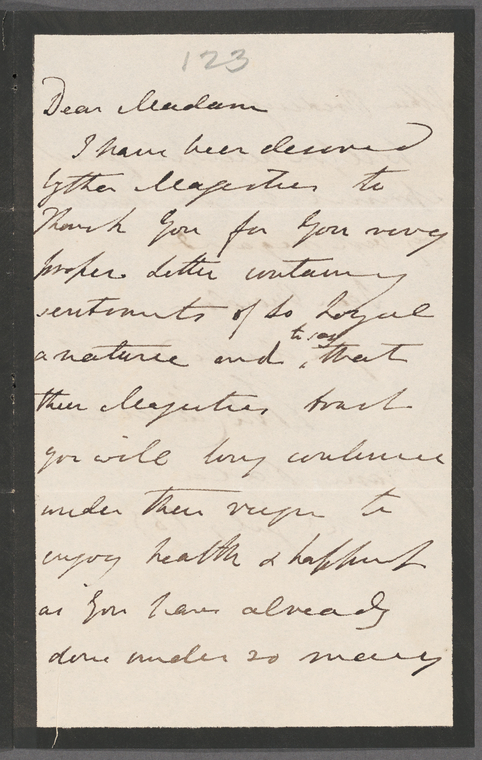 123
Dear Madam
I have been desired
by their Majesties to
thank You for Your very
proper Letter containing
sentiments of so Loyal
a nature and to say that
their Majesties trust
you will long continue
under their reign to
enjoy health & happiness
as You have already
done under so many